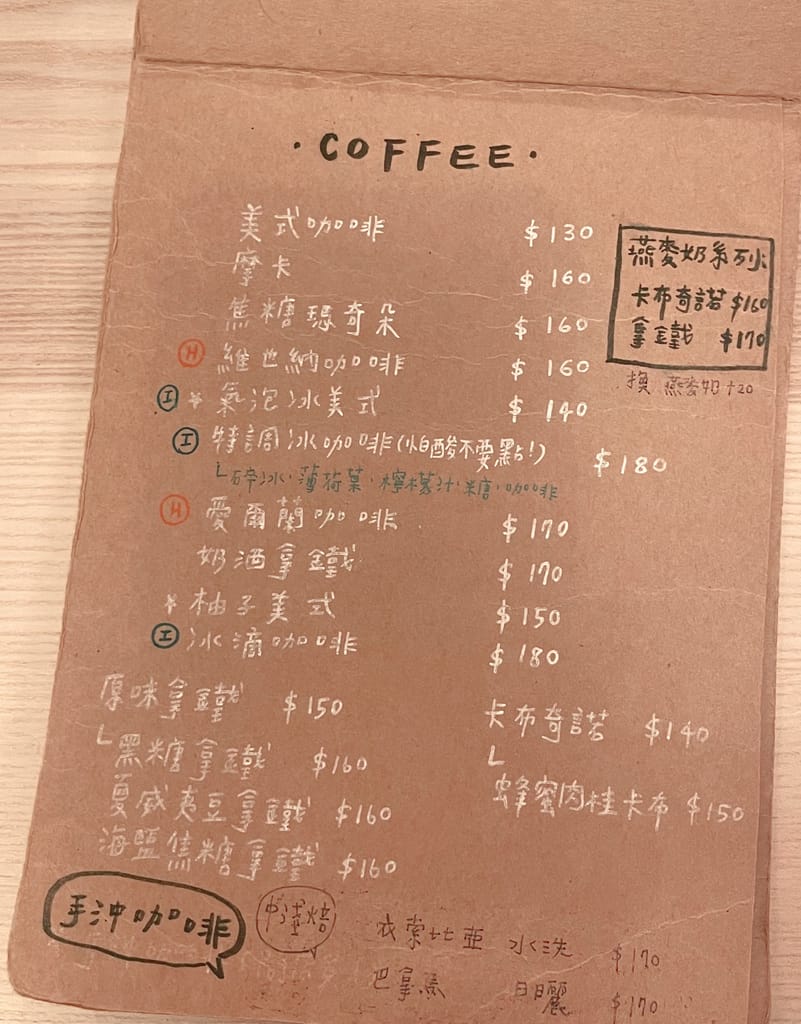 ·COFFEE·
美式咖啡 $130
摩卡 $160
焦糖瑪奇朵 $160
H 維也納咖啡 $160
I * 氣泡冰美式 $140
I 特調冰咖啡(怕酸不要點!) $180
碎冰·薄荷葉·檸檬汁·糖·咖啡
H 愛爾蘭咖啡 $170
奶酒拿鐵 $170
* 柚子美式 $150
I 冰滴咖啡 $180
燕麥奶系列
卡布奇諾 $160
拿鐵 $170
換 燕麥奶+20
厚味拿鐵 $150
黑糖拿鐵 $160
夏威夷豆拿鐵 $160
海鹽焦糖拿鐵 $160
卡布奇諾 $140
蜂蜜肉桂卡布 $150
手沖咖啡
中淺焙
衣索比亞 水洗 $170
巴拿馬 日曬 $170